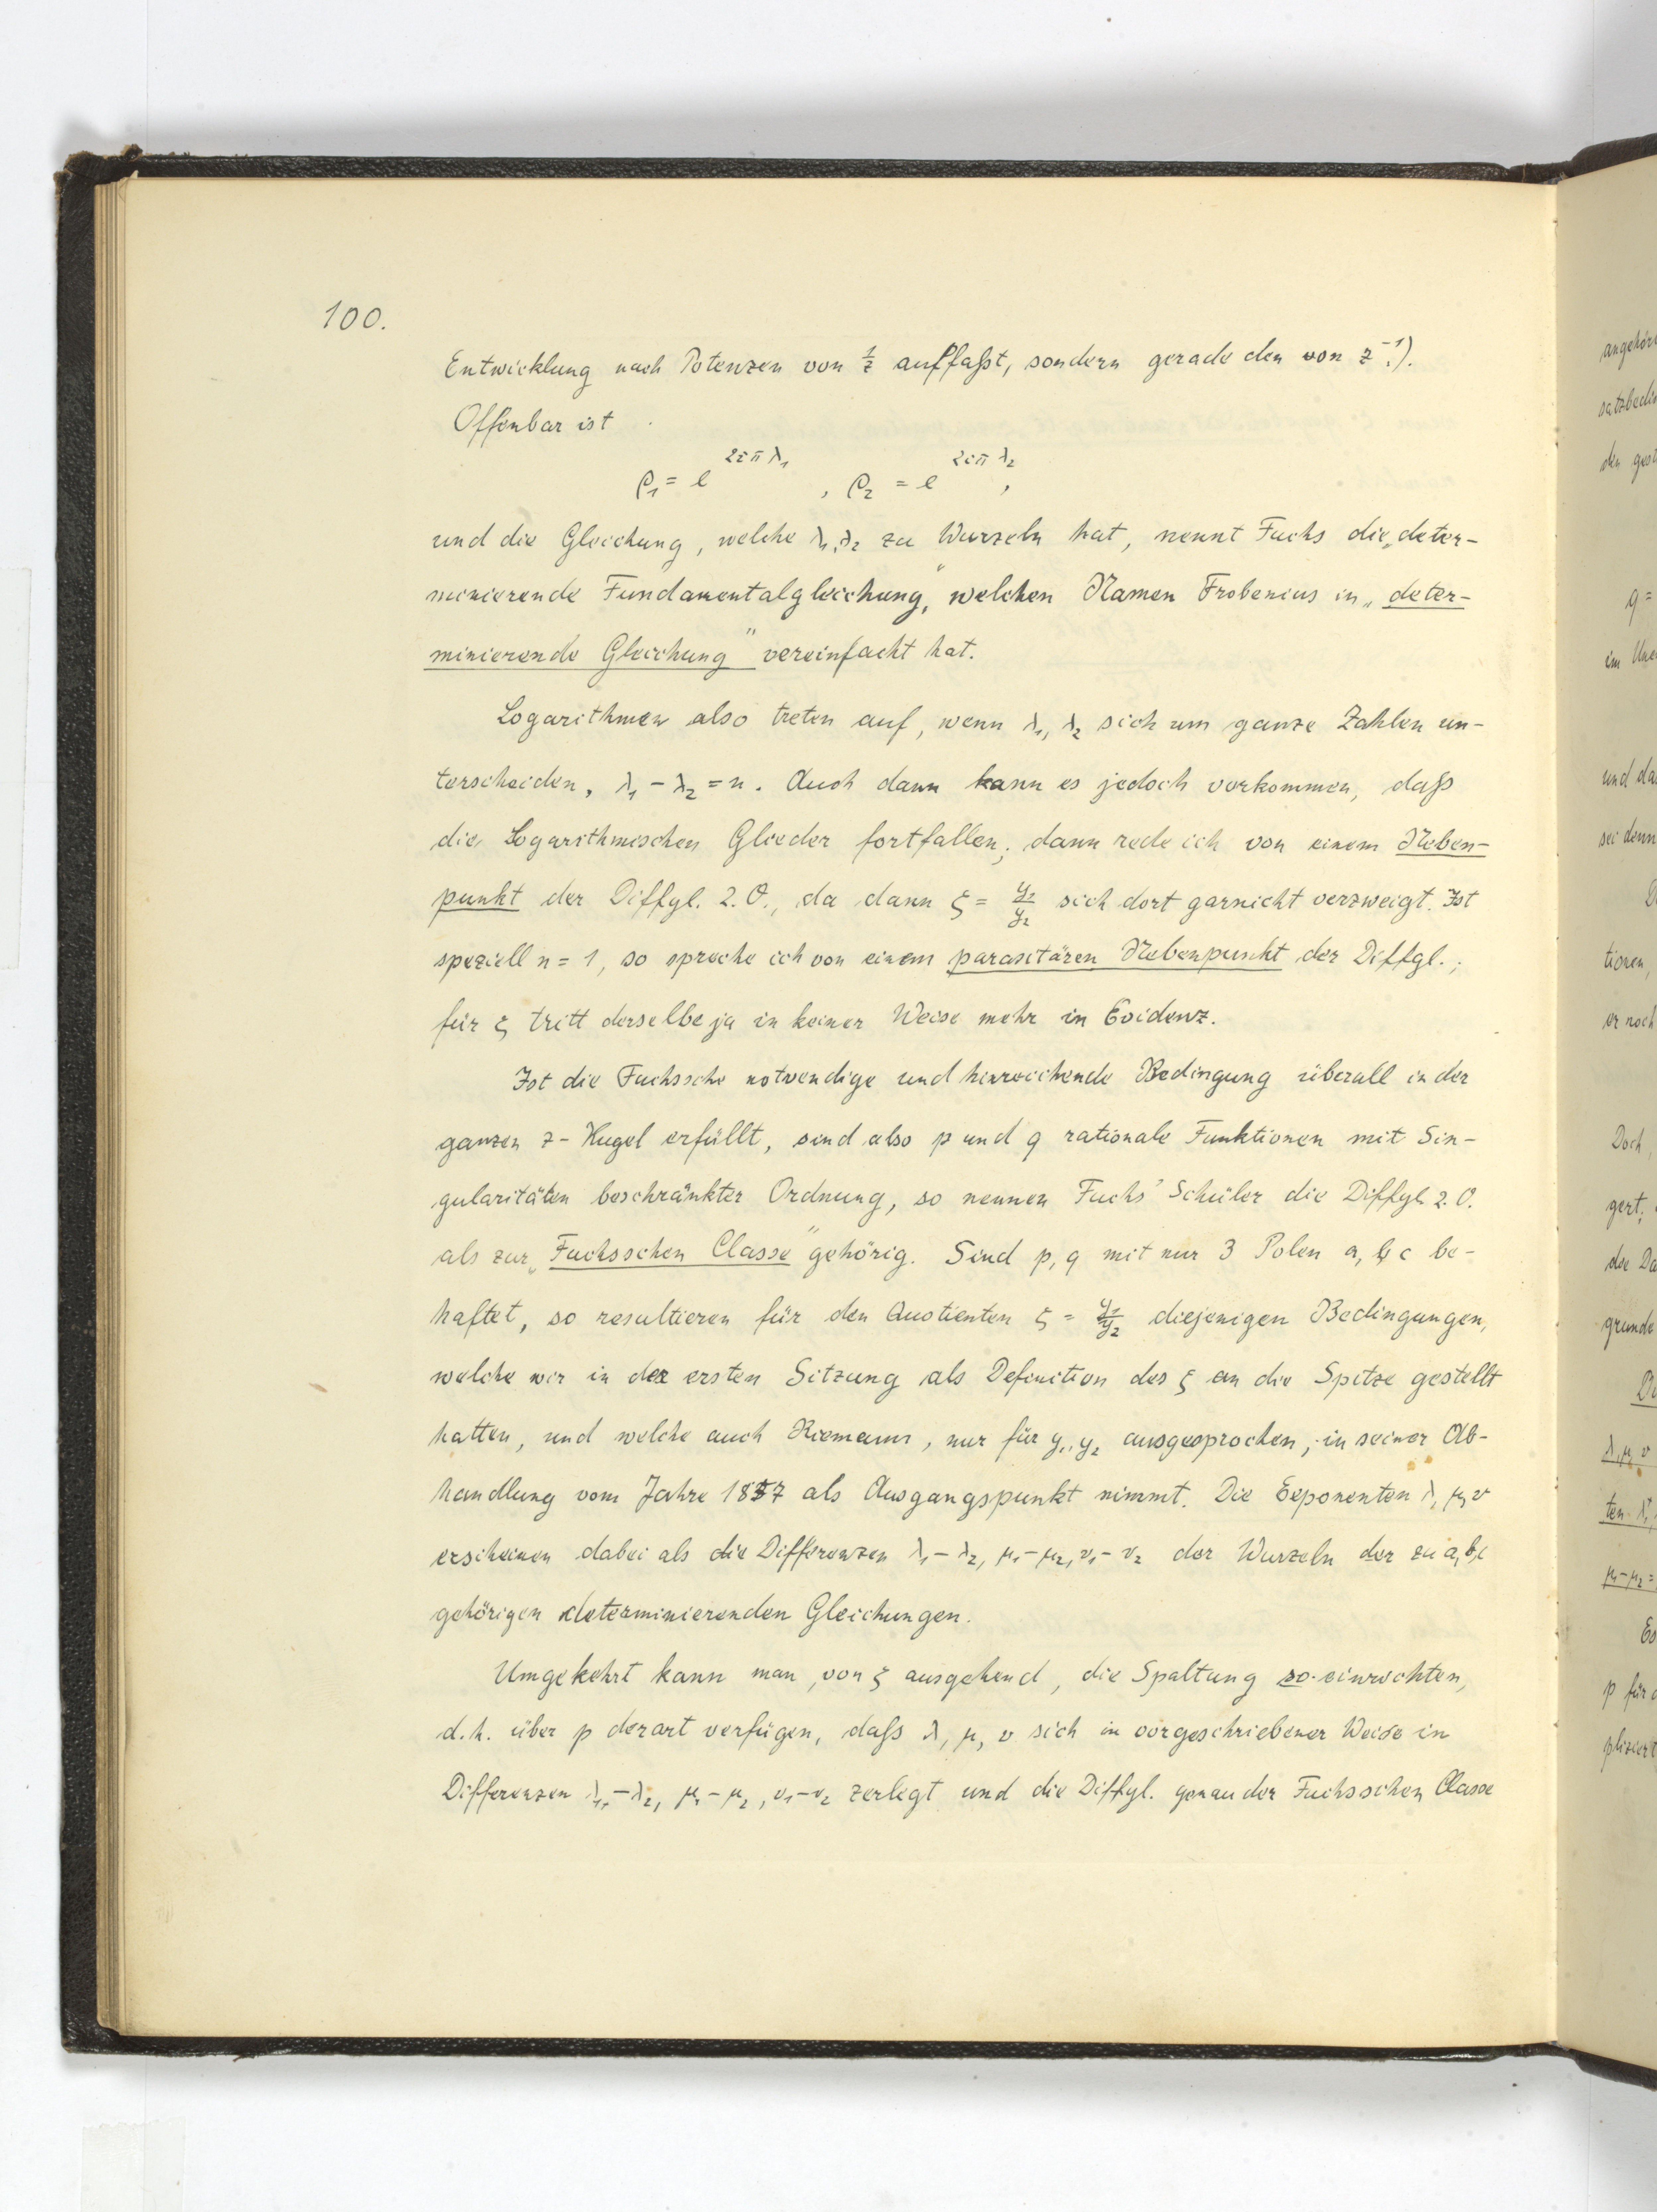 100.
Entwicklung nach Potenzen von 1/z auffaßt, sondern gerade den von z⁻¹.).
Offenbar ist
ρ₁ = e^{2iπλ₁}, ρ₂ = e^{2iπλ₂},
und die Gleichung, welche λ₁, λ₂ zu Wurzeln hat, nennt Fuchs die „deter-
minierende Fundamentalgleichung", welchen Namen Frobenius in „deter-
minierende Gleichung" vereinfacht hat.
Logarithmen also treten auf, wenn λ₁, λ₂ sich um ganze Zahlen un-
terscheiden, λ₁ - λ₂ = n. Auch dann kann es jedoch vorkommen, daß
die Logarithmischen Glieder fortfallen; dann rede ich von einem Neben-
punkt der Diffgl. 2. O., da dann ξ = y₁/y₂ sich dort garnicht verzweigt. Ist
speziell n = 1, so spreche ich von einem parasitären Nebenpunkt der Diffgl.;
für ξ tritt derselbe ja in keiner Weise mehr in Evidenz.
Ist die Fuchssche notwendige und hinreichende Bedingung überall in der
ganzen z-Kugel erfüllt, sind also p und q rationale Funktionen mit Sin-
gularitäten beschränkter Ordnung, so nennen Fuchs' Schüler die Diffgl. 2. O.
als zur „Fuchsschen Classe" gehörig. Sind p, q mit nur 3 Polen a, b, c be-
haftet, so resultieren für den Quotienten ξ = y₁/y₂ diejenigen Bedingungen,
welche wir in der ersten Sitzung als Definition des ξ an die Spitze gestellt
hatten, und welche auch Riemann, nur für y₁, y₂ ausgesprochen, in seiner Ab-
handlung vom Jahre 1857 als Ausgangspunkt nimmt. Die Exponenten λ, μ, ν
erscheinen dabei als die Differenzen λ₁-λ₂, μ₁-μ₂, ν₁-ν₂ der Wurzeln der zu a, b, c
gehörigen determinierenden Gleichungen.
Umgekehrt kann man, von ξ ausgehend, die Spaltung so einrichten,
d. h. über p derart verfügen, daß λ, μ, ν sich in vorgeschriebener Weise in
Differenzen λ₁-λ₂, μ₁-μ₂, ν₁-ν₂ zerlegt und die Diffgl. genau der Fuchsschen Classe